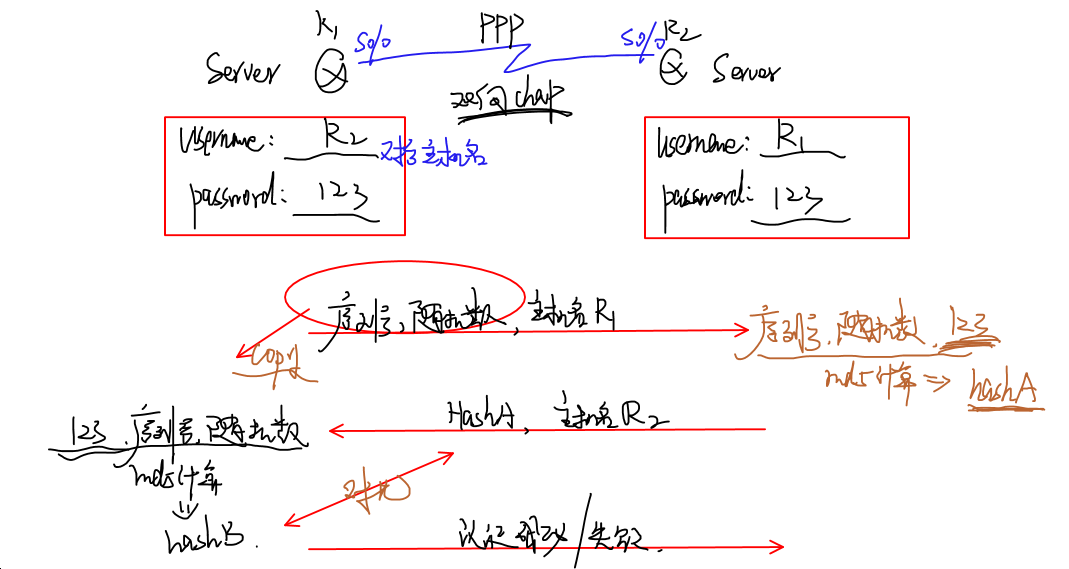 R1 PPP R2
S0/0 S0/0
Server Server
双向chap
username: R2
对方主机名
password: 123
username: R1
password: 123
序列号,随机数,主机名R1
copy
序列号,随机数,123
md5计算 => hashA
HashA, 主机名R2
123,序列号,随机数
md5计算
=>
hashB.
对比
认证成功/失败.